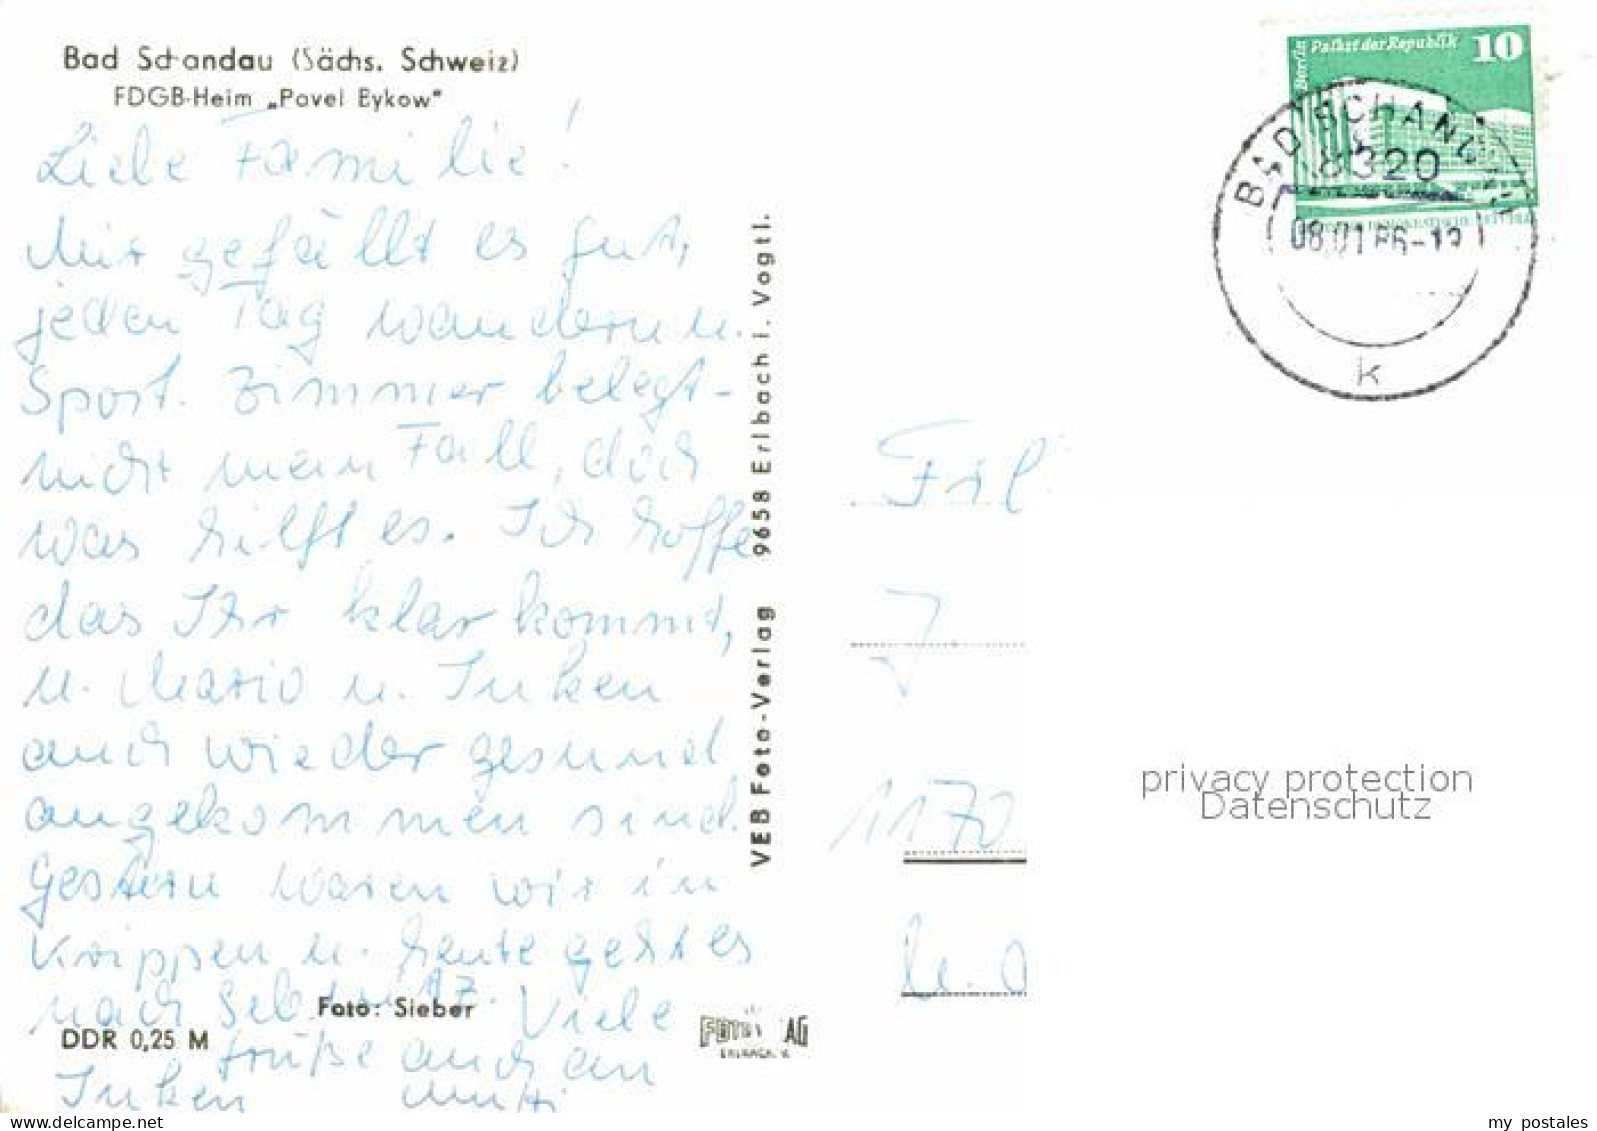 Bad Schandau (Sächs. Schweiz)
FDGB-Heim „Pavel Bykow"
Liebe Familie!
Mir gefällt es gut,
jeden Tag wandern u.
Sport. Zimmer belegt -
nicht mein Fall, doch
was hilft es. Ich hoffe
das Ihr klar kommt,
u. Mario u. Inken
auch wieder gesund
angekommen sind.
Gestern waren wir in
Krippen u. heute geht es
nach Sebnitz. Viele
Grüße auch an
Inken Mutti
Foto: Sieber
DDR 0,25 M
VEB Foto-Verlag 9658 Erlbach i. Vogtl.
Berlin Palast der Republik 10
BAD SCHANDAU
8320
08.01.86-12
k
1170
privacy protection
Datenschutz
my postales